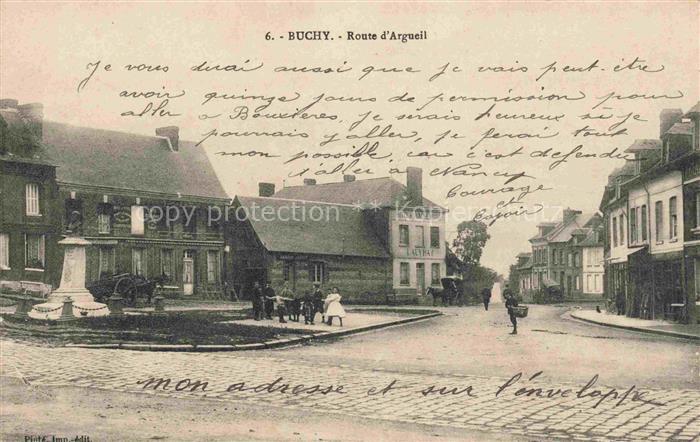 6. - BUCHY. - Route d'Argueil
je vous dirai aussi que je vais peut-être
avoir quinze jours de permission pour
aller a Bouvières, je serais heureux si je
pourrais y aller, je ferai tout
mon possible, car c'est defendu
d'aller a Nancy
Courage
et
Espoir
copy protected
Kepner.net
mon adresse et sur l'enveloppe